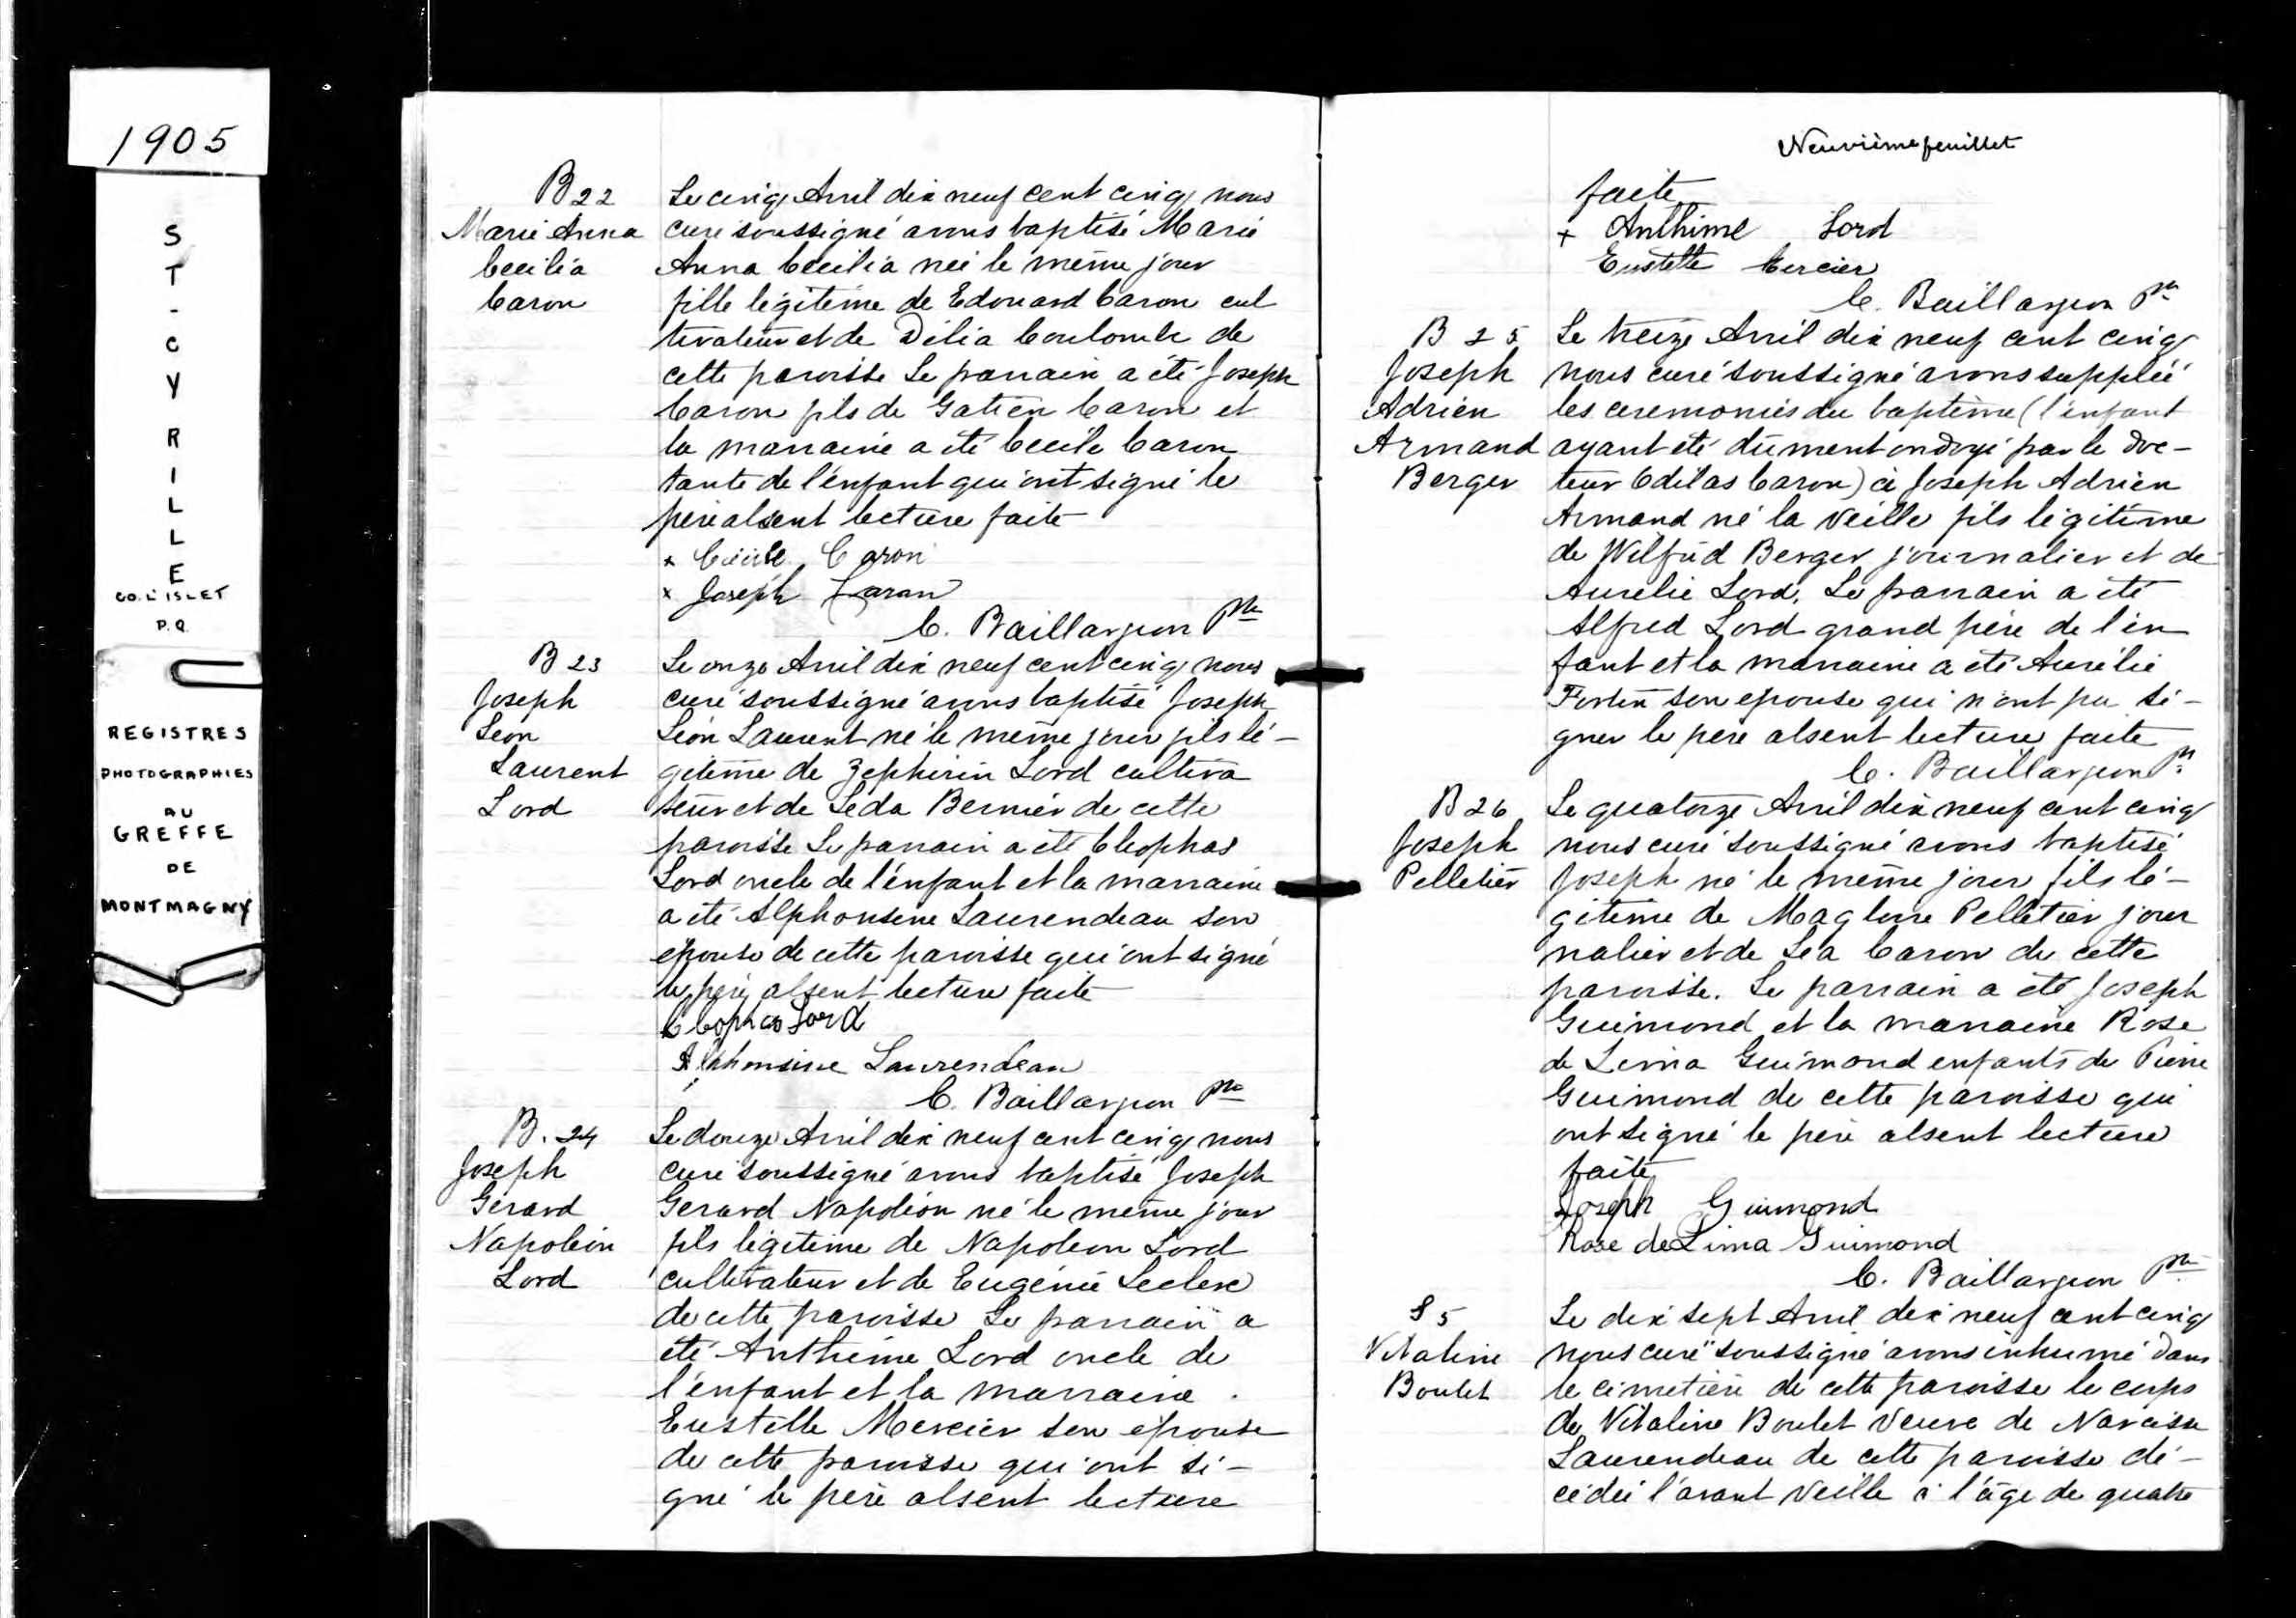 1905
ST-CYRILLE
CO. L'ISLET
P.Q.
REGISTRES
PHOTOGRAPHIES
AU
GREFFE
DE
MONTMAGNY
B 22
Marie Anna
Cecilia
Caron
Le cinq Avril dix neuf cent cinq nous
curé soussigné avons baptisé Marie
Anna Cecilia née le même jour
fille légitime de Edouard Caron cul
tivateur et de Délia Coulombe de
cette paroisse Le parrain a été Joseph
Caron fils de Gatien Caron et
la marraine a été Cecile Caron
tante de l'enfant qui ont signé le
père absent lecture faite
x Cécile Caron
x Joseph Caron
C. Baillargeon Ptre
B 23
Joseph
Leon
Laurent
Lord
Le onze Avril dix neuf cent cinq nous
curé soussigné avons baptisé Joseph
Léon Laurent né le même jour fils lé-
gitime de Zephirin Lord cultiva
teur et de Léda Bernier de cette
paroisse Le parrain a été Cleophas
Lord oncle de l'enfant et la marraine
a été Alphonsine Laurendeau son
épouse de cette paroisse qui ont signé
le père absent lecture faite
Cleophas Lord
Alphonsine Laurendeau
C. Baillargeon Ptre
B. 24
Joseph
Gérard
Napoléon
Lord
Le douze Avril dix neuf cent cinq nous
curé soussigné avons baptisé Joseph
Gerard Napoléon né le même jour
fils légitime de Napoleon Lord
cultivateur et de Eugénie Leclerc
de cette paroisse Le parrain a
été Anthime Lord oncle de
l'enfant et la marraine
Eustelle Mercier son epouse
de cette paroisse qui ont si-
gné le père absent lecture
Neuvième feuillet
faite
+ Anthime Lord
Eustelle Mercier
C. Baillargeon Ptre
B 25
Joseph
Adrien
Armand
Berger
Le treize Avril dix neuf cent cinq
nous curé soussigné avons suppléé
les ceremonies du baptême (l'enfant
ayant été dûment ondoyé par le doc-
teur Odilas Caron) à Joseph Adrien
Armand né la veille fils légitime
de Wilfrid Berger journalier et de
Aurelie Lord. Le parrain a été
Alfred Lord grand père de l'en
fant et la marraine a été Aurélie
Fortin son epouse qui n'ont pu si-
gner le père absent lecture faite
C. Baillargeon Ptre
B 26
Joseph
Pelletier
Le quatorze Avril dix neuf cent cinq
nous curé soussigné avons baptisé
Joseph né le même jour fils lé-
gitime de Magloire Pelletier jour
nalier et de Léa Caron de cette
paroisse. Le parrain a été Joseph
Guimond et la marraine Rose
de Lima Guimond enfants de Pierre
Guimond de cette paroisse qui
ont signé le père absent lecture
faite
Joseph Guimond
Rose de Lima Guimond
C. Baillargeon Ptre
S 5
Vitaline
Boulet
Le dix sept Avril dix neuf cent cinq
nous curé soussigné avons inhumé dans
le cimetière de cette paroisse le corps
de Vitaline Boulet veuve de Narcisse
Laurendeau de cette paroisse dé-
cédée l'avant veille à l'âge de quatre